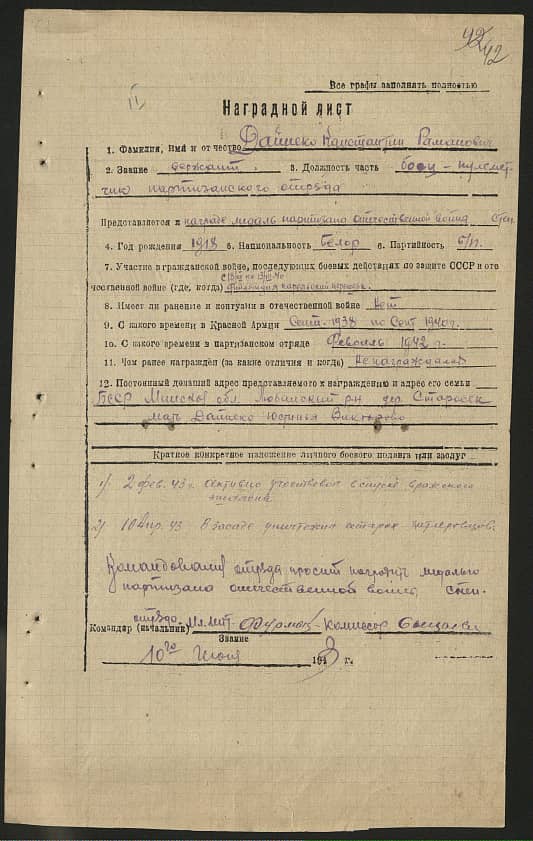 42
42
Все графы заполнять полностью
II
Наградной лист
1. Фамилия, Имя и отчество Дайнеко Константин Раманович
2. Звание сержант 3. Должность часть боец - пулемет-
чик партизанского отряда
Представляется к награде медаль партизана отечественной война степ.
4. Год рождения 1918 5. Национальность белор 6. Партийность б/п.
7. Участие в гражданской войне, последующих боевых действиях по защите СССР и оте
чественной войне (где, когда) Финляндия карельский перешеек
8. Имеет ли ранение и контузии в отечественной войне Нет
9. С какого времени в Красной Армии Сент. 1938 по Сент 1940 г.
10. С какого времени в партизанском отряде Февраль 1942 г.
11. Чем ранее награждён (за какие отличия и когда) Не награждался
12. Постоянный домашний адрес представляемого к награждению и адрес его семьи
БССР Минская обл. Любанский р-н дер.
мать Дайнеко
Краткое конкретное изложение личного боевого подвига или заслуг
1) 2 фев. 43 г. активно участвовал в спуске вражеского
эшелона
2) 10 апр. 43 В засаде уничтожил гитлеровцев.
Командования отряда просит наградить медалью
партизана отечественной войны степ.
отряда
Командир (начальник) мл. лит. комиссор
Звание
10го Июня 1943 г.